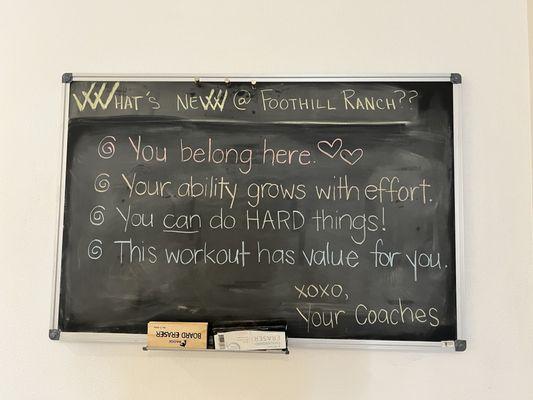 WHAT'S NEW @ FOOTHILL RANCH??
You belong here.
Your ability grows with effort.
You can do HARD things!
This workout has value for you.
xoxo,
Your Coaches
BOARD ERASER
ERASER